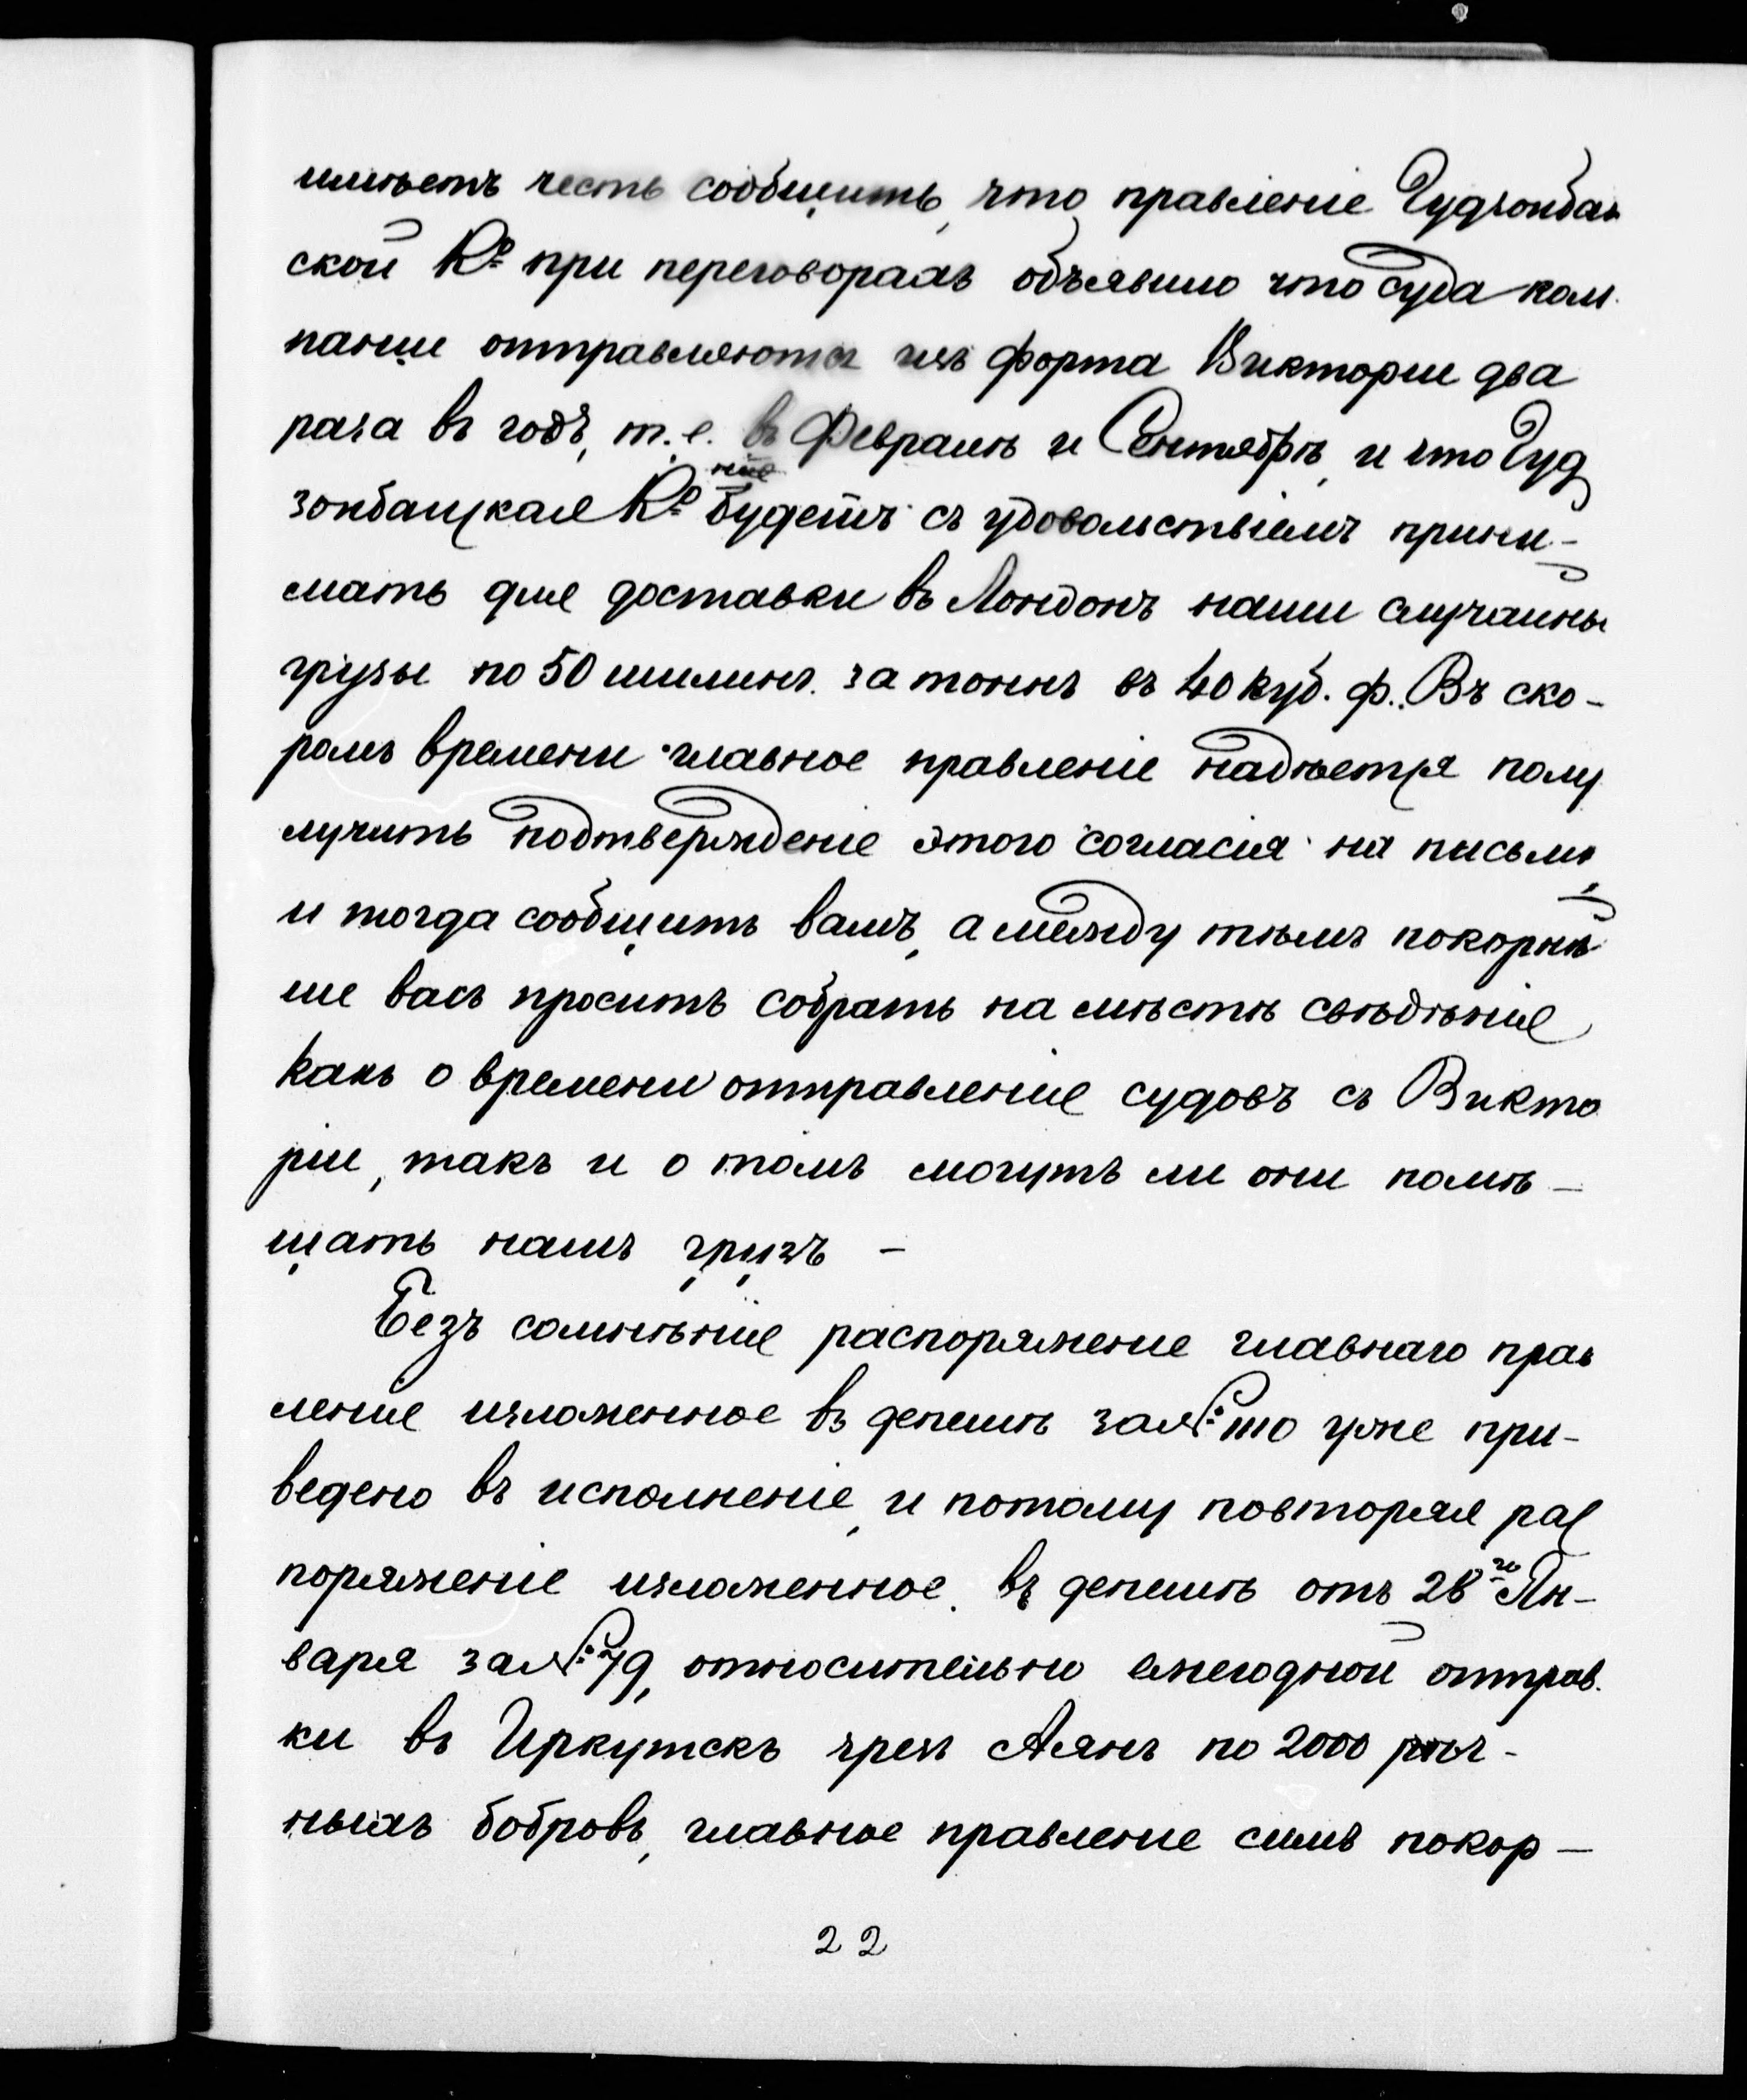 имѣетъ честь сообщить, что правленіе Гудзонбай
ской Ко при переговорахъ объявило что суда ком
паніи отправляются изъ форта Викторіи два
раза въ годъ, т.е. въ Февралѣ и Сентябрѣ, и что Гуд
зонбайская Ко будетъ съ удовольствіемъ прини-
мать для доставки въ Лондонъ наши случайны
грузы по 50 шилинг. за тоннъ въ 40 куб. ф. Въ ско-
ромъ времени главное правленіе надѣется полу
лучить подтвержденіе этого согласія на письмѣ
и тогда сообщить вамъ, а между тѣмъ покорнѣ
ше васъ проситъ собрать на мѣстѣ свѣдѣнія
какъ о времени отправленія судовъ съ Викто
ріи, такъ и о томъ могутъ ли они помѣ-
щать нашъ грузъ -
Безъ сомнѣнія распоряженіе главнаго прав
ленія изложенное въ депешѣ за № 1110 уже при-
ведено въ исполненіе, и потому повторяя рас
поряженіе изложенное въ депешѣ отъ 28го Ян-
варя за № 79, относительно ежегодной отправ.
ки въ Иркутскъ чрезъ Аянъ по 2000 рѣч-
ныхъ бобровъ, главное правленіе симъ покор-
22